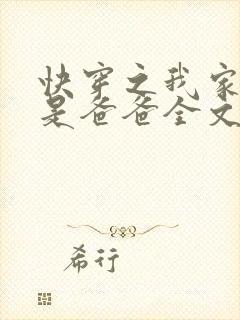 快穿之我家
是爸爸全文
希行